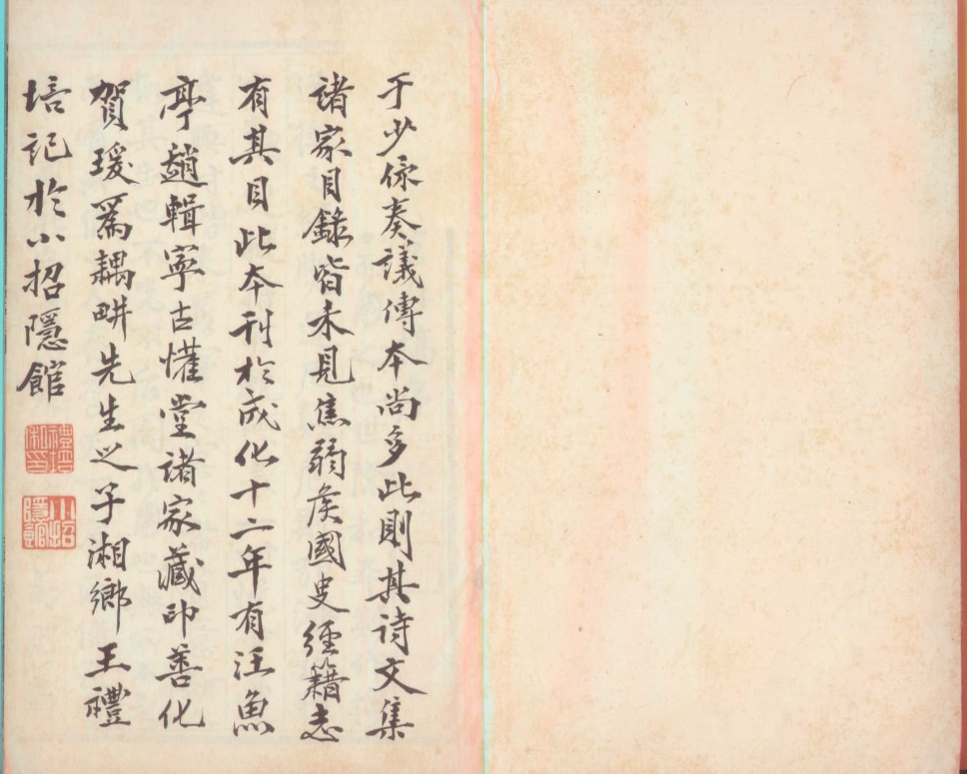 于少保奏議傳本尚多此則其詩文集
諸家目錄皆未見焦弱侯國史經籍志
有其目此本刊於成化十二年有汪魚
亭趙輯寧古懽堂諸家藏印善化
賀瑗爲耦畊先生之子湘鄉王禮
培記於小招隱館
禮培私印
小招隱館